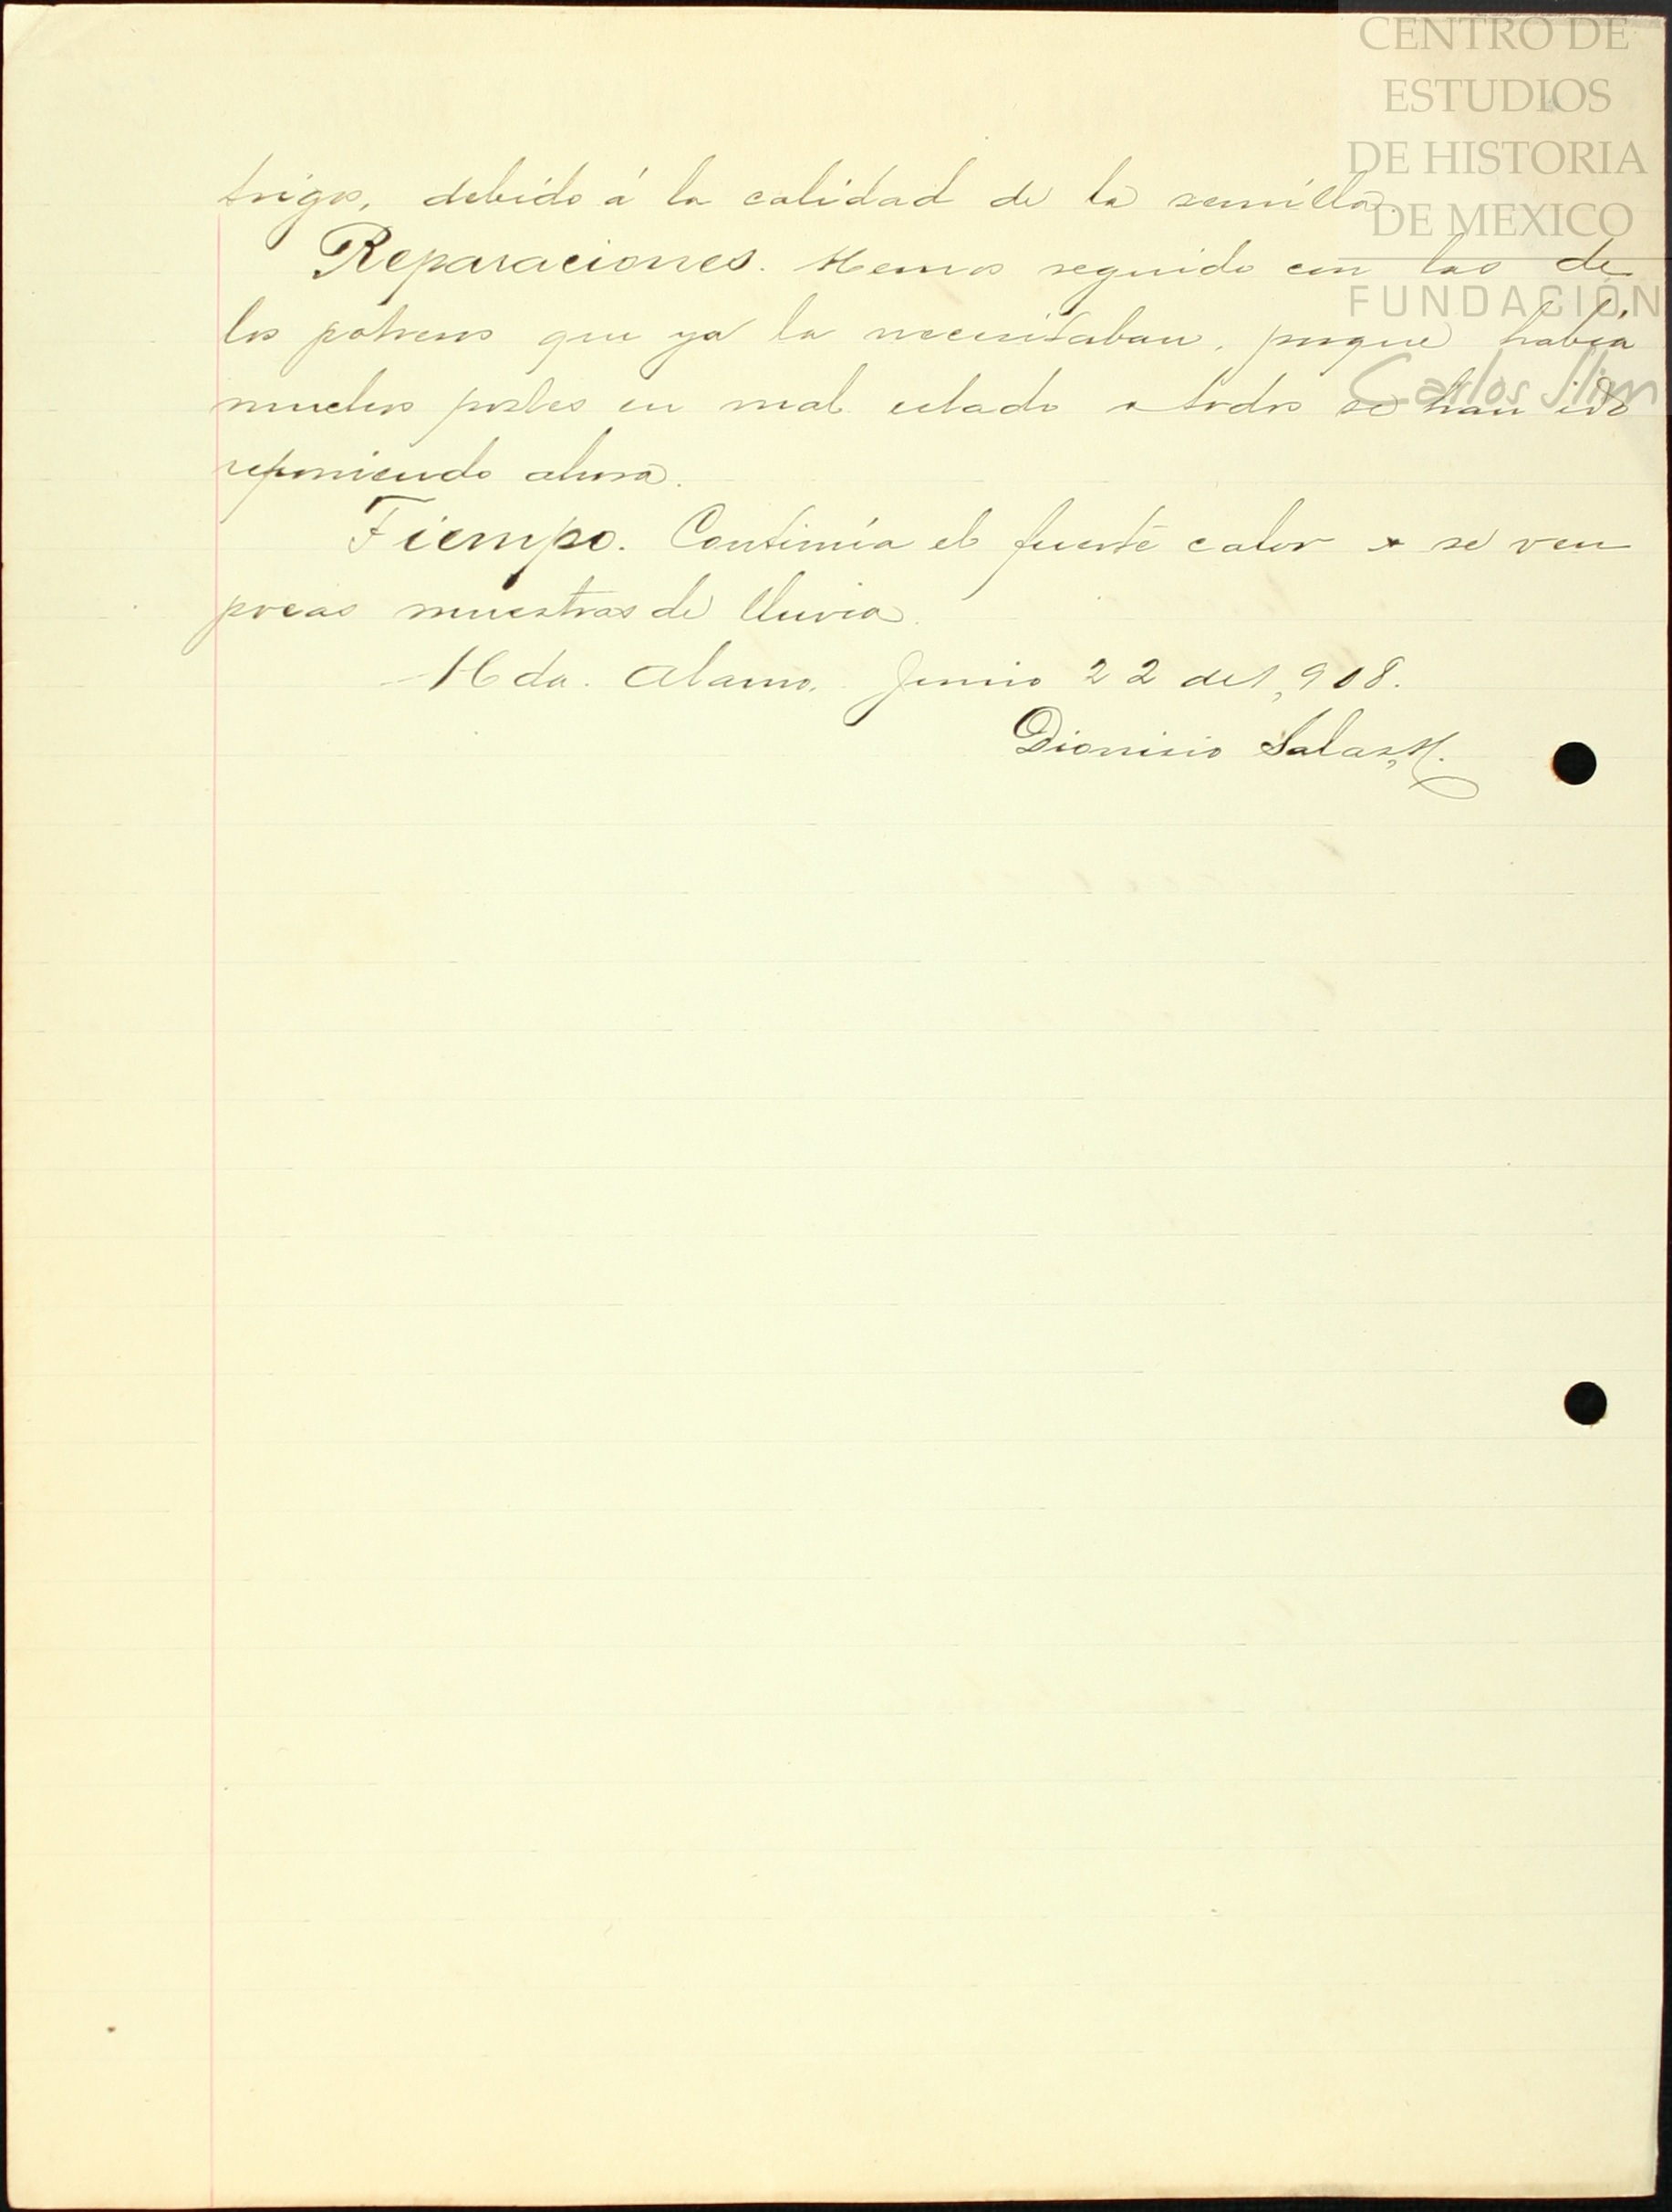 trigo, debido á la calidad de la semilla.
Reparaciones. Hemos seguido con las de
los potreros que ya la necesitaban, porque había
muchos postes en mal estado y todos se han ido
reponiendo ahora.
Tiempo. Continúa el fuerte calor y se ven
pocas muestras de lluvia.
Hda. Alamo. Junio 22 de 1,908.
Dionisio Salas, H.
CENTRO DE
ESTUDIOS
DE HISTORIA
DE MEXICO
FUNDACIÓN
Carlos Slim